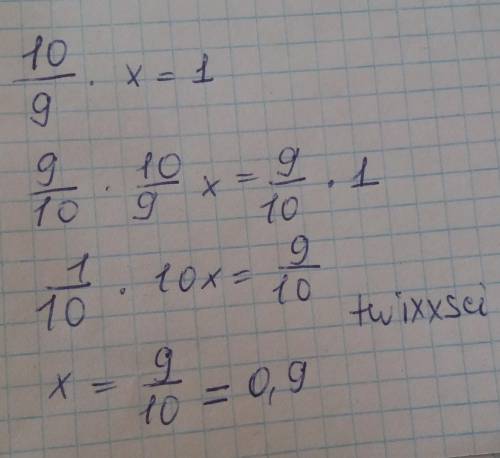 10/9 · x = 1
9/10 · 10/9 x = 9/10 · 1
1/10 · 10x = 9/10
twixxsci
x = 9/10 = 0,9